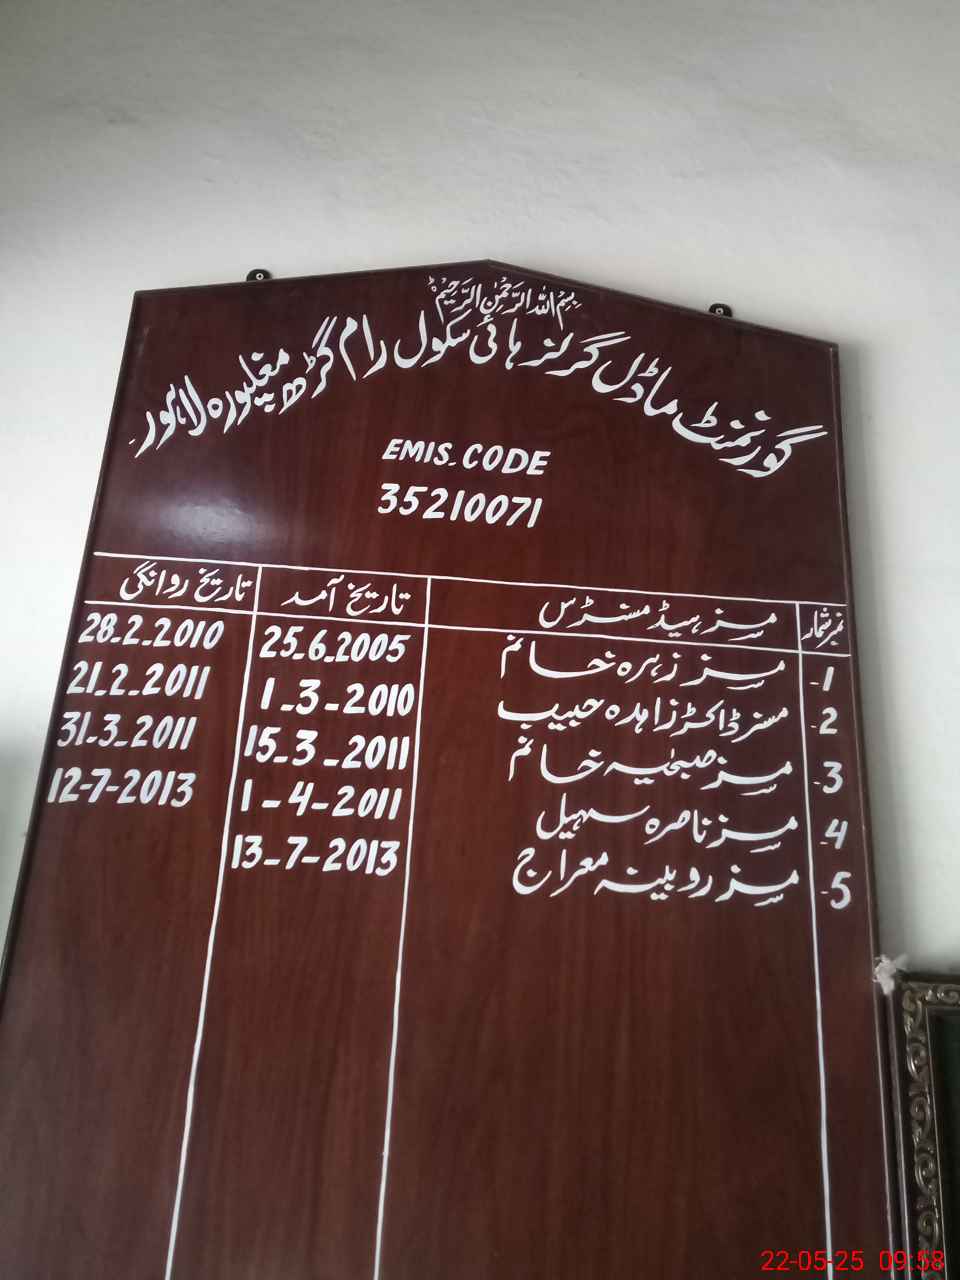 بِسْمِ اللّٰہِ الرَّحْمٰنِ الرَّحِیْمِ
گورنمنٹ ماڈل گرلز ہائی سکول رام گڑھ مغلپورہ لاہور
EMIS. CODE
35210071
نمبر شمار مسز ہیڈ مسٹرس تاریخ آمد تاریخ روانگی
1- مسز زہرہ خانم 25.6.2005 28.2.2010
2- مسز ڈاکٹر زاہدہ حبیب 1-3-2010 21.2.2011
3- مسز صبحیہ خانم 15-3-2011 31-3-2011
4- مسز ناصرہ سہیل 1-4-2011 12-7-2013
5- مسز روبینہ معراج 13-7-2013
22-05-25 09:58